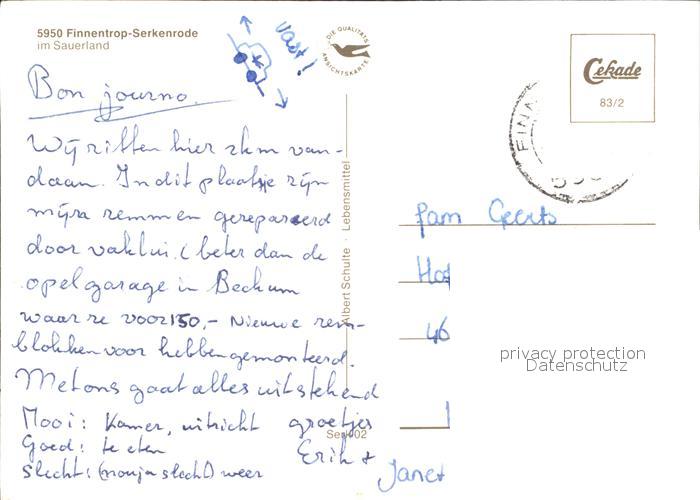 5950 Finnentrop-Serkenrode
im Sauerland
vast!
DIE QUALITÄTS
ANSICHTSKARTE
Cekade
83/2
FINN
Bon journo.
Wij zitten hier 2km van-
daan. In dit plaatsje zijn
mijn remmen gerepareerd
door vaklui. (beter dan de
opel garage in Beckum
waar ze voor 150,- Nieuwe rem-
blokken voor hebben gemonteerd.
Met ons gaat alles uitstekend
Mooi: Kamer, uitzicht groetjes
Goed: te eten Erik +
slecht: (nou ja slecht) weer Janet
Albert Schulte · Lebensmittel
Fam Geerts
Hof
46
privacy protection
Datenschutz